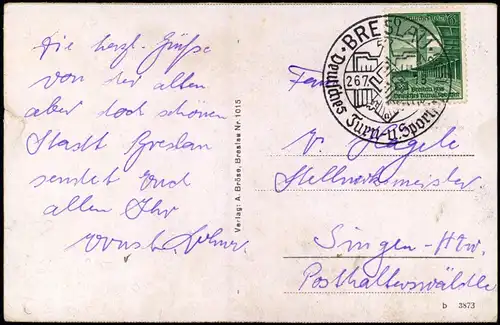 Die herzl. Grüße
von der alten
aber doch schönen
Stadt Breslau
sendet Euch
allen Ihr
Verlag: A. Bröse, Breslau Nr. 1015
BRESLAU
26.7.
Deutsches Turn- u. Sport
Fam.
V. Hägele
Stellwerksmeister
Singen-Htw.
Posthalterswäldle
b 3873